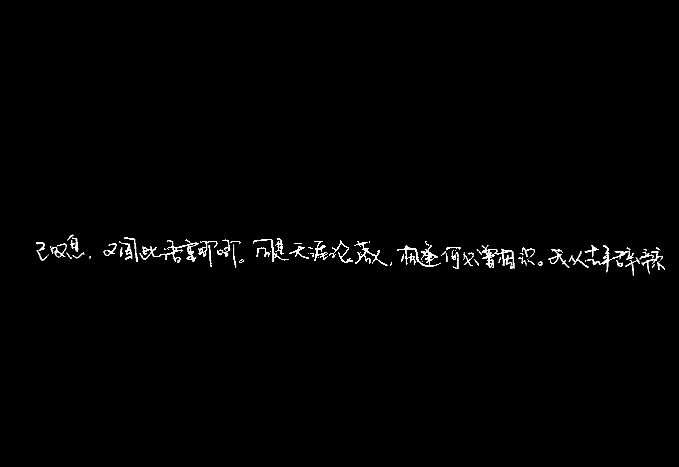 已叹息,又闻此语重唧唧。同是天涯沦落人,相逢何必曾相识。我从去年辞帝京